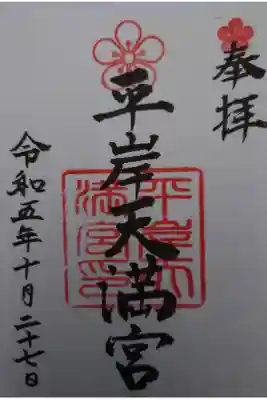 奉拝
平岸天満宮
平岸天満宮印
令和五年十月二十七日